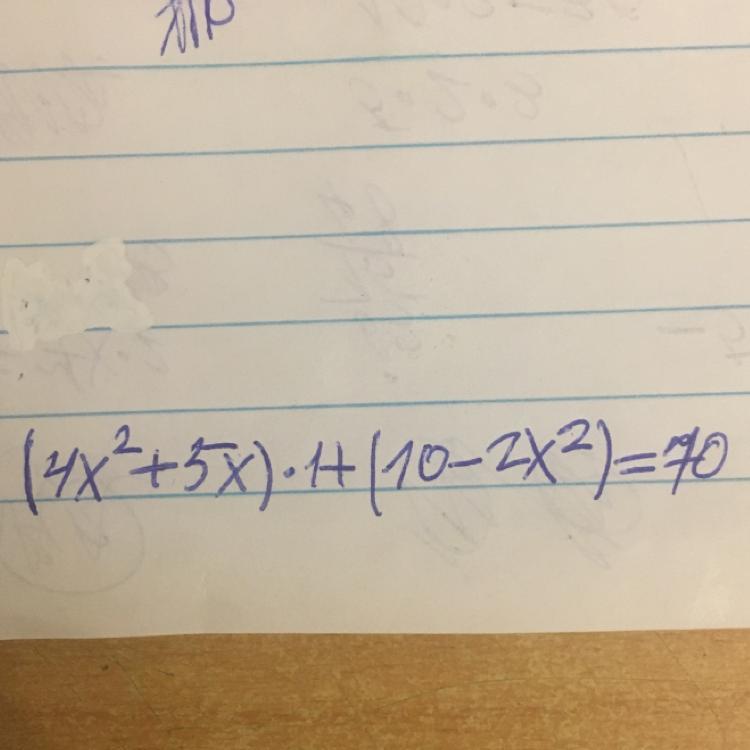 (4x²+5x)·1+(10-2x²)=70